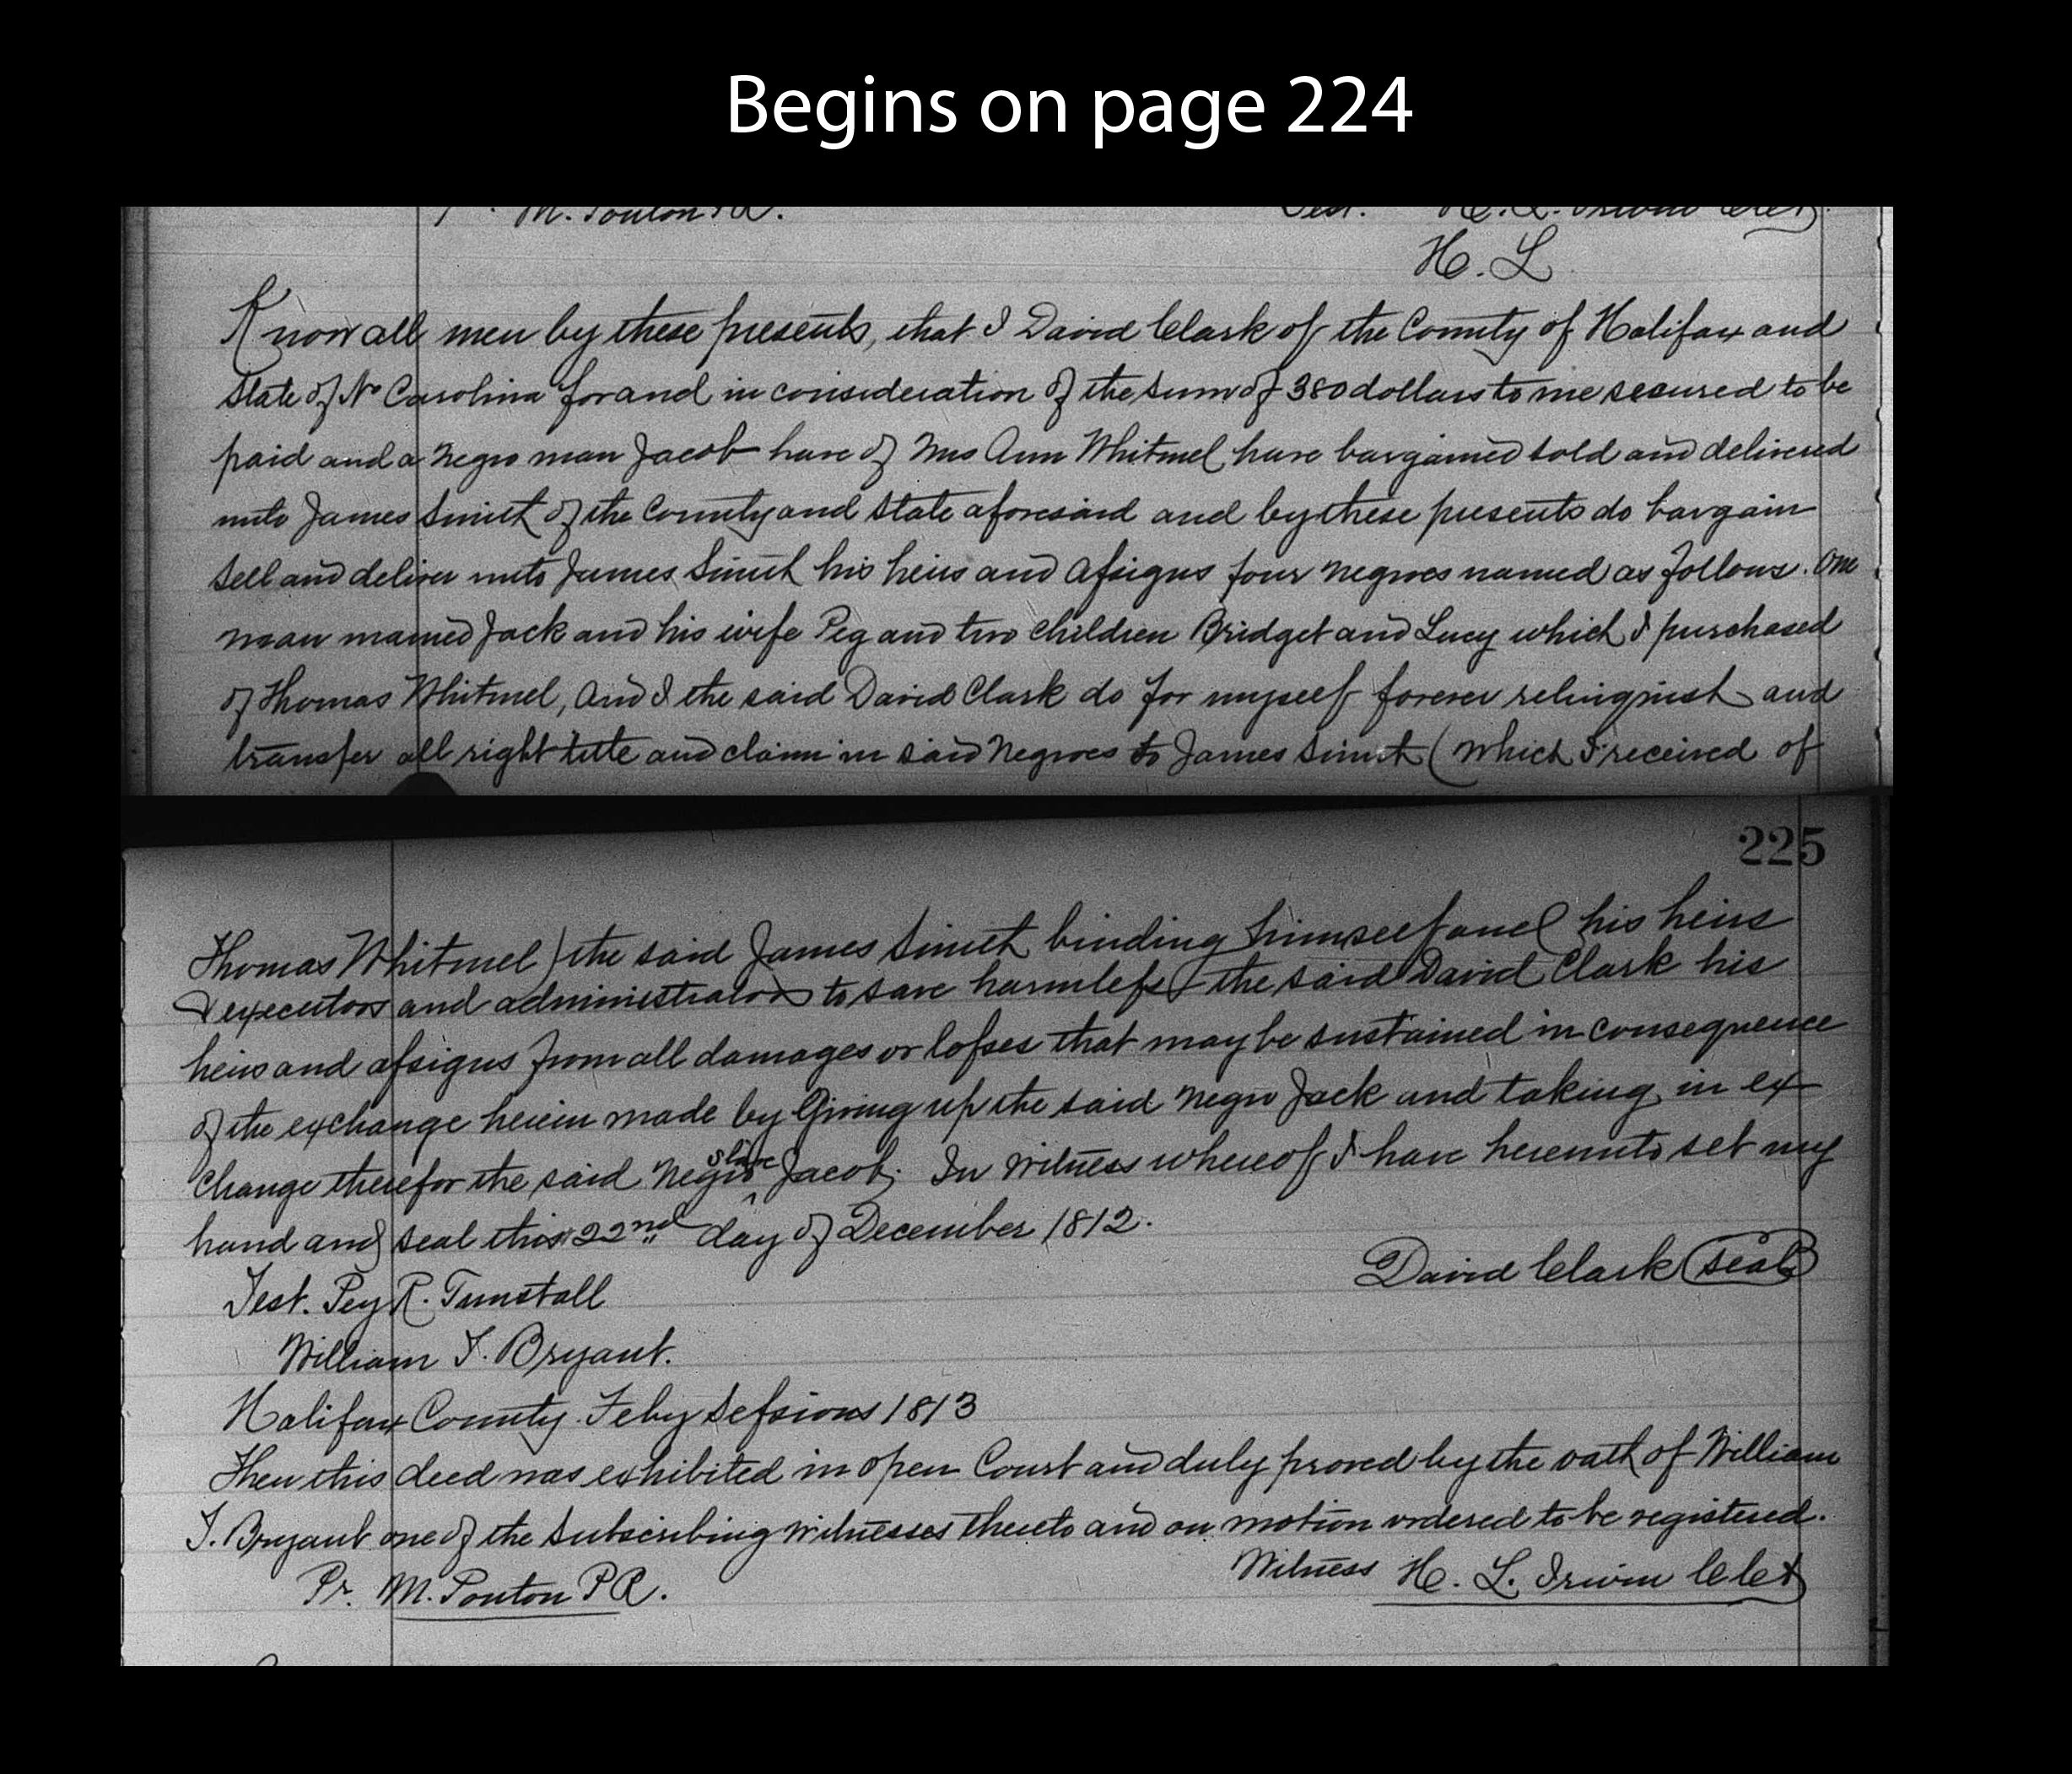 Begins on page 224
M. Pouton P.R.
Test. H. L. Irwin Clet
H. L
Know all men by these presents, that I David Clark of the County of Halifax and
State of No Carolina for and in consideration of the sum of 380 dollars to me secured to be
paid and a Negro man Jacob have of Mrs Ann Whitmel have bargained sold and delivered
unto James Smith of the County and State aforesaid and by these presents do bargain
sell and deliver unto James Smith his heirs and assigns four negroes named as follows. One
man named Jack and his wife Peg and two children Bridget and Lucy which I purchased
of Thomas Whitmel, And I the said David Clark do for myself forever relinquish and
transfer all right title and claim in said Negroes to James Smith (which I received of
225
Thomas Whitmel) the said James Smith binding himself and his heirs
executors and administrators to save harmless the said David Clark his
heirs and assigns from all damages or losses that may be sustained in consequence
of the exchange herein made by Giving up the said negro Jack and taking in ex
change therefor the said Negro slave Jacob. In witness whereof I have hereunto set my
hand and seal this 22nd day of December 1812.
David Clark (seal)
Test. Pey R. Tunstall
William T. Bryant.
Halifax County. Feby Sessions 1813
Then this deed was exhibited in open Court and duly proved by the oath of William
T. Bryant one of the subscribing witnesses thereto and on motion ordered to be registered.
Witness H. L. Irwin Clet
Pr. M. Pouton P R.